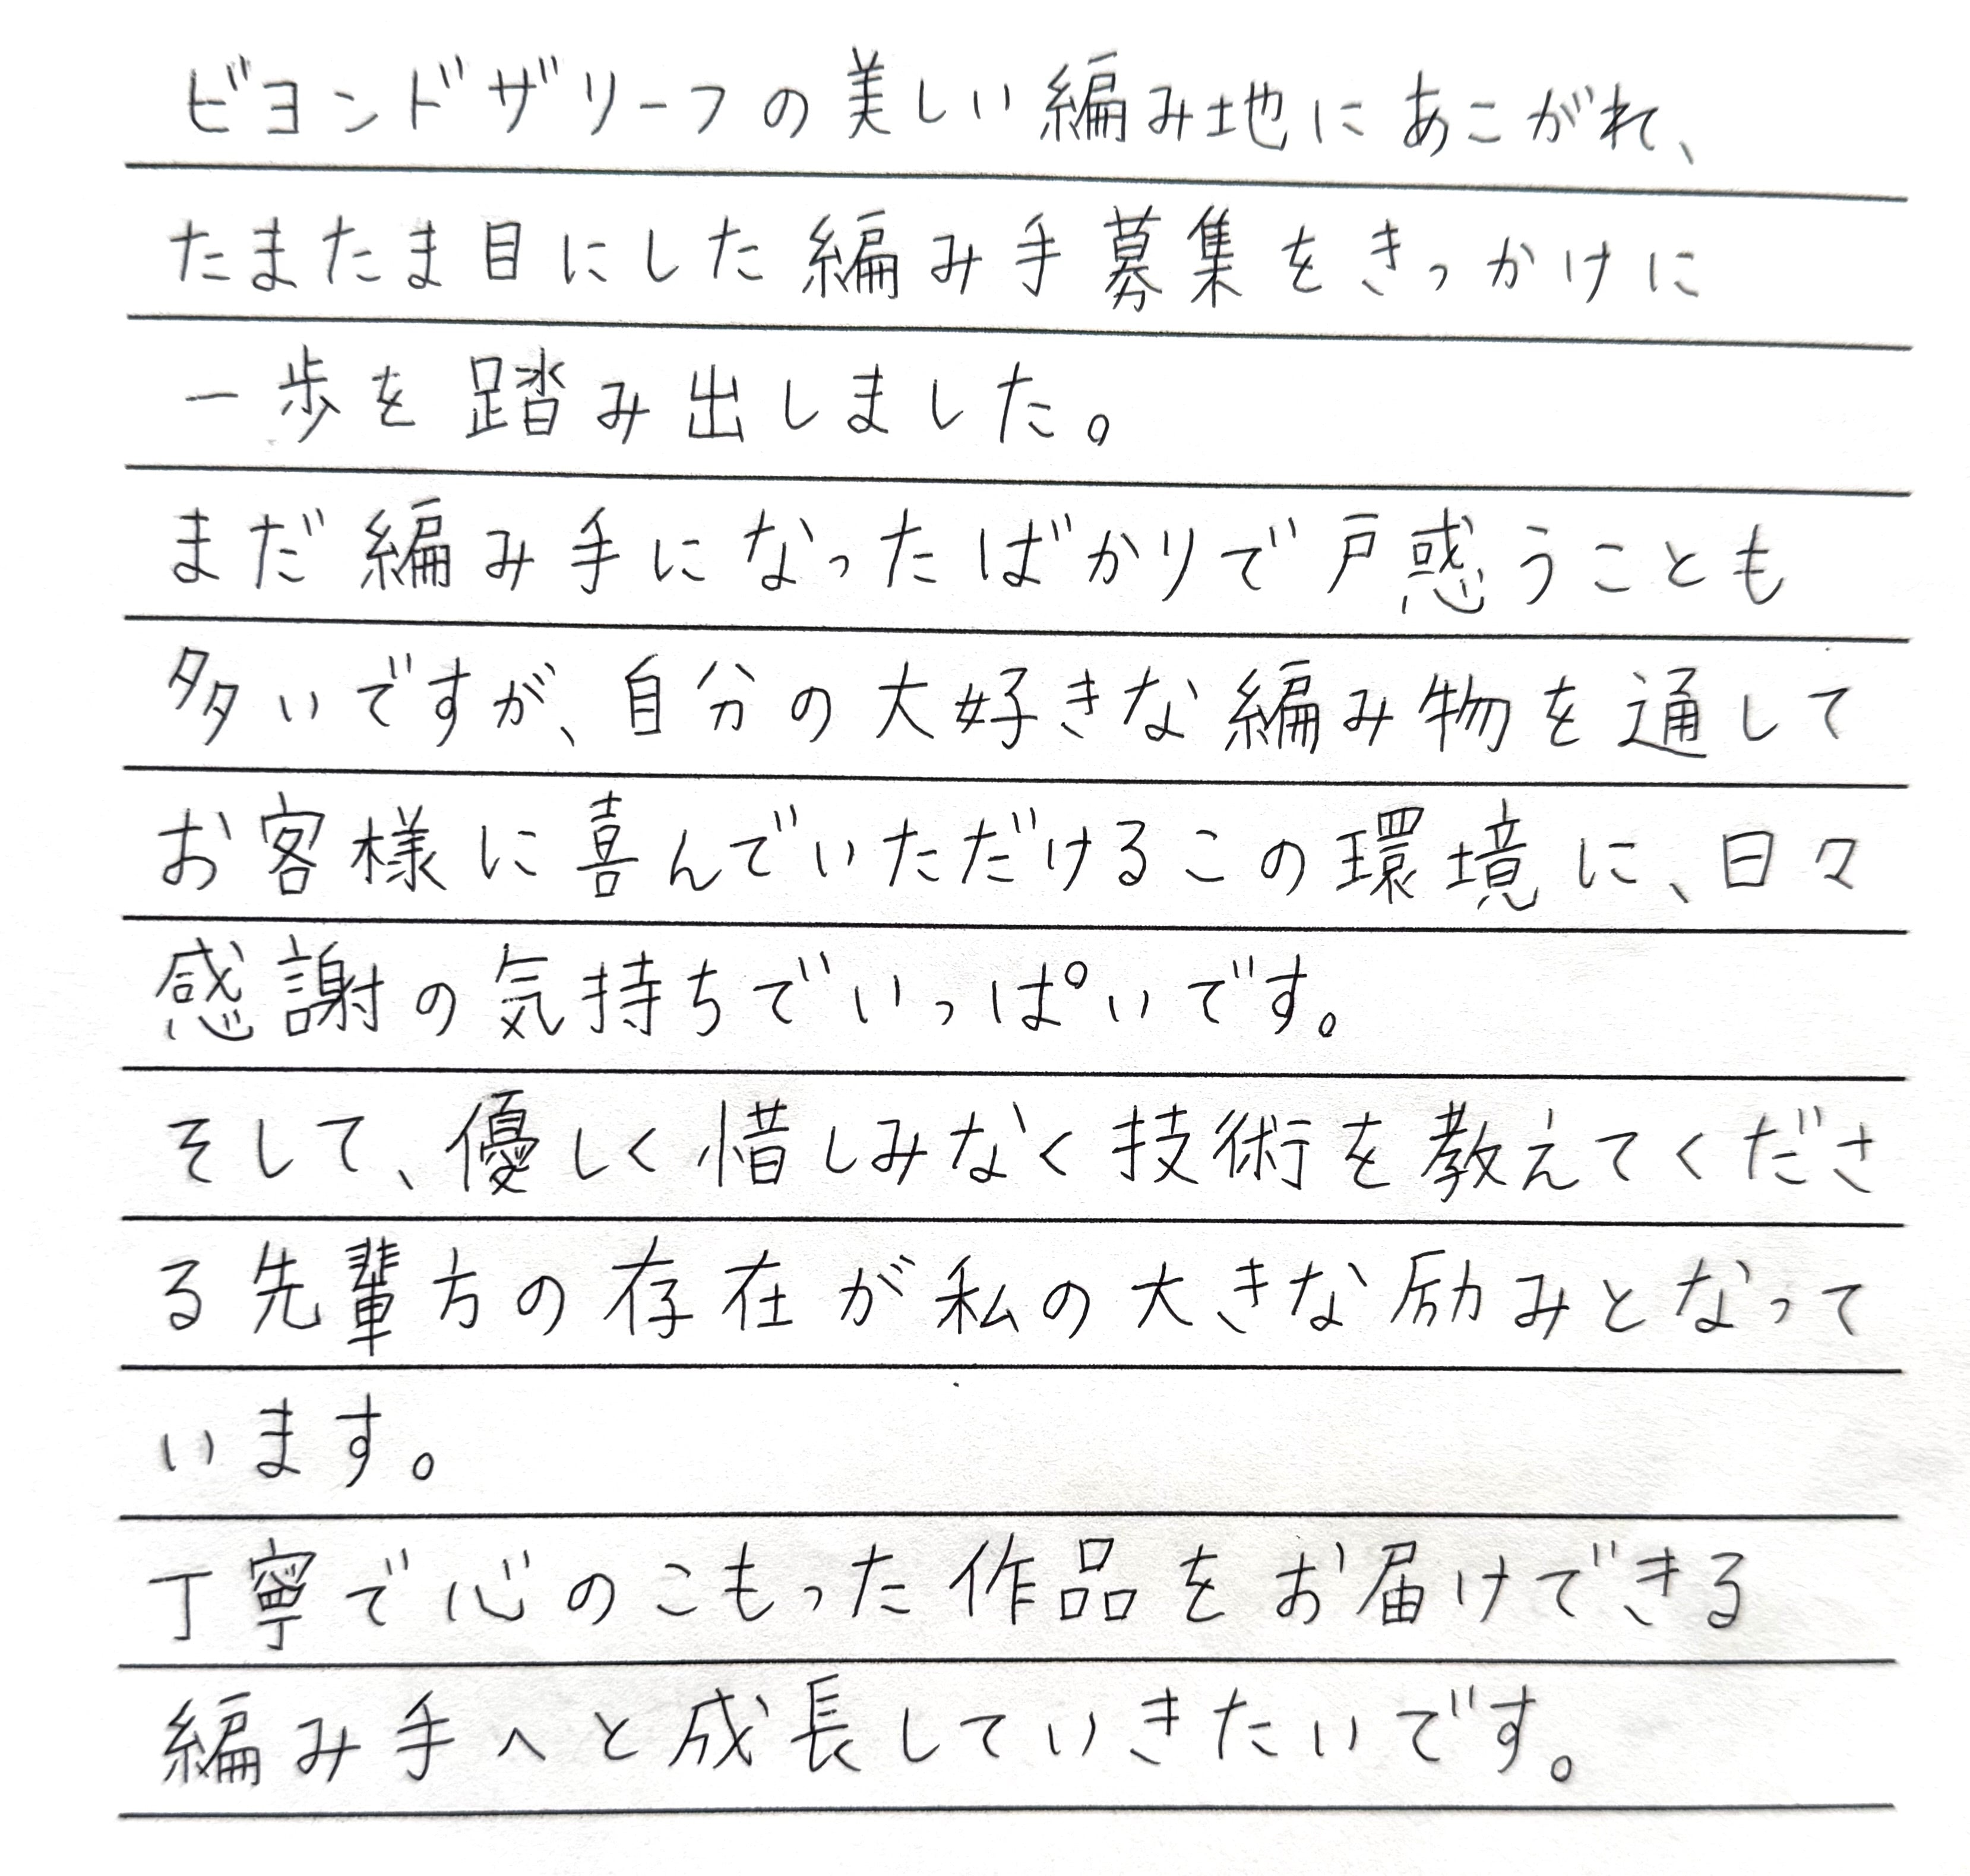 ビヨンドザリーフの美しい編み地にあこがれ、
たまたま目にした編み手募集をきっかけに
一歩を踏み出しました。
まだ編み手になったばかりで戸惑うことも
多いですが、自分の大好きな編み物を通して
お客様に喜んでいただけるこの環境に、日々
感謝の気持ちでいっぱいです。
そして、優しく惜しみなく技術を教えてくださ
る先輩方の存在が私の大きな励みとなって
います。
丁寧で心のこもった作品をお届けできる
編み手へと成長していきたいです。